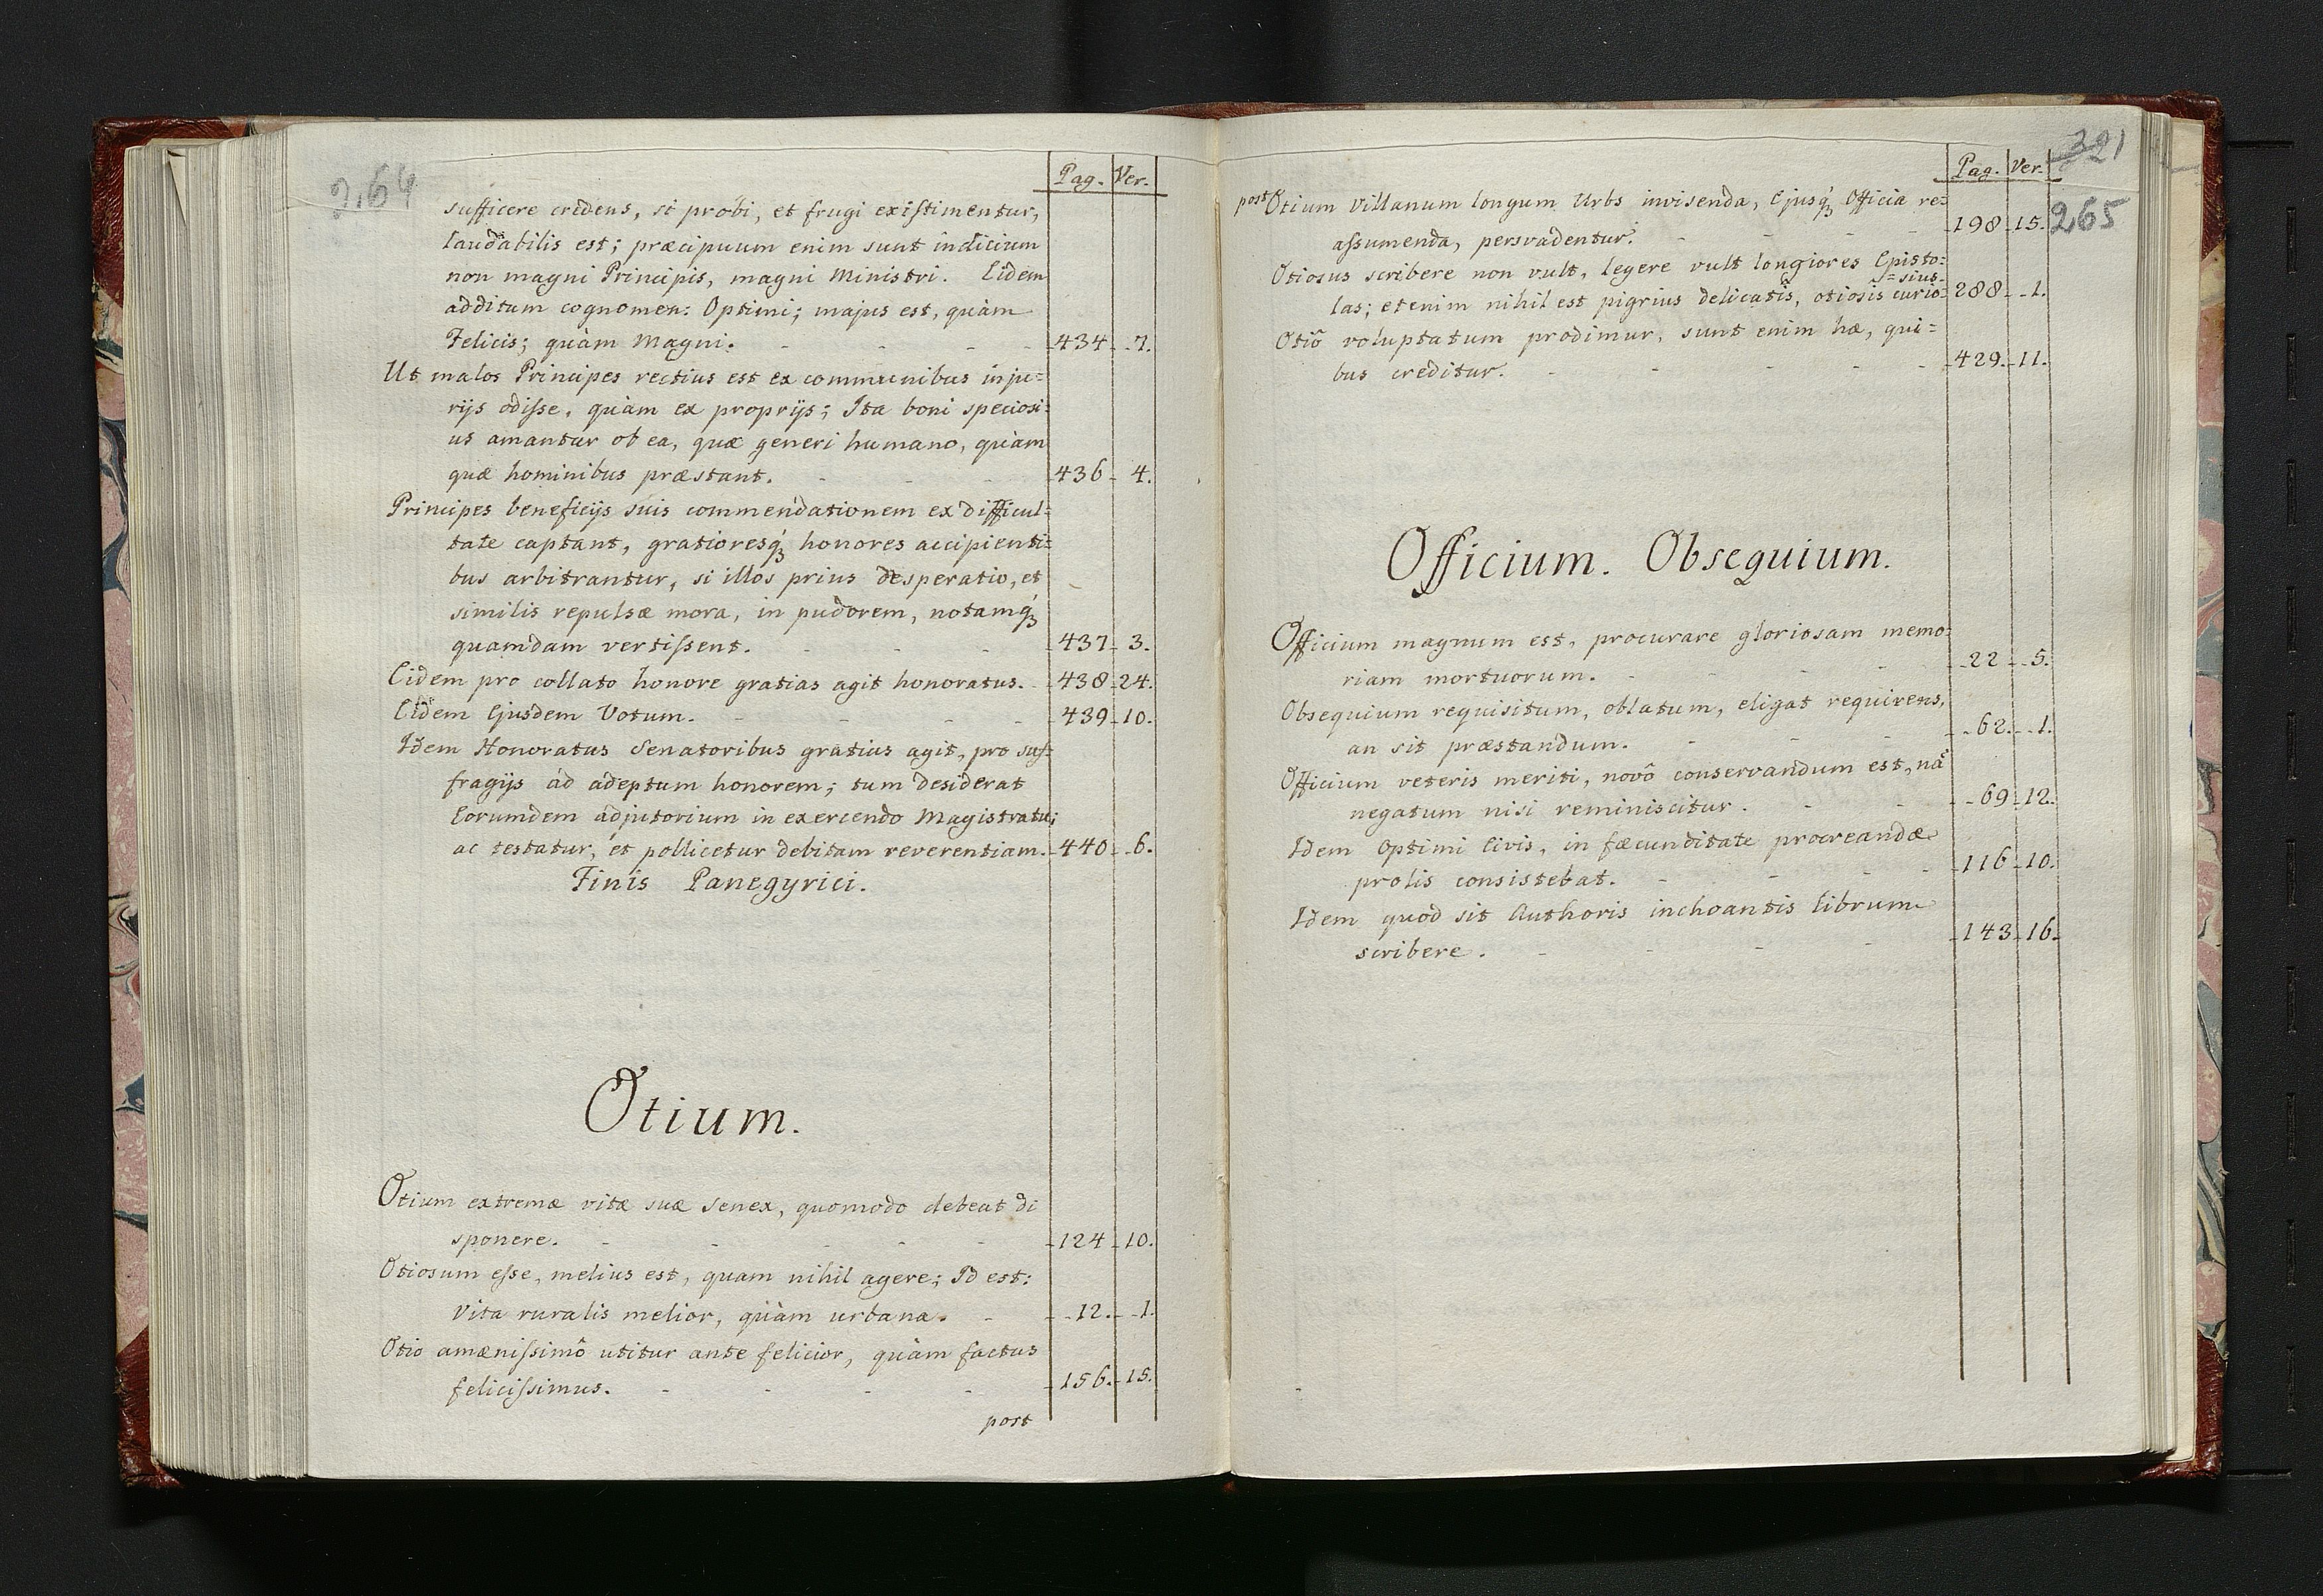 264
Pag. Ver.
sufficere credens, si probi, et frugi existimentur,
laudabilis est; præcipuum enim sunt indicium
non magni Principis, magni Ministri. Eidem
additum cognomen: Optimi; majus est, quàm
Felicis; quàm Magni. - - - 434 - 7.
Ut malos Principes rectius est ex communibus inju=
rijs odisse, quàm ex proprijs; Ita boni speciosi=
us amantur ob ea, quæ generi humano, quàm
quæ hominibus præstant. - - - 436 - 4.
Principes beneficijs suis commendationem ex difficul=
tate captant, gratioresq́ꝫ honores accipienti=
bus arbitrantur, si illos prius desperatio, et
similis repulsæ mora, in pudorem, notamq́ꝫ
quamdam vertissent. - - - 437 - 3.
Eidem pro collato honore gratias agit honoratus. - 438 - 24.
Eidem Ejusdem Votum. - - - 439 - 10.
Idem Honoratus Senatoribus gratius agit, pro suf=
fragijs ad adeptum honorem; tum desiderat
Eorumdem adjutorium in exercendo Magistratu;
ac testatur, et pollicetur debitam reverentiam. - 440 - 6.
Finis Panegyrici.
Otium.
Otium extremæ vitæ suæ senex, quomodo debeat di
sponere. - - - - - 124 - 10.
Otiosum esse, melius est, quam nihil agere; Id est:
Vita ruralis melior, quàm urbana. - - 12. - 1.
Otio amænissimô utitur ante felicior, quàm factus
felicissimus. - - - - 156. - 15.
post
321
Pag. Ver.
265
post Otium Villanum longum Urbs invisenda, Ejusq́ꝫ Officia re=
assumenda, persvadentur. - - - 198 - 15.
Otiosus scribere non vult, legere vult longiores Episto=
las; etenim nihil est pigrius delicatis, otiosis curio= 288 - 1.
=sius.
Otiô voluptatum prodimur, sunt enim hæ, qui=
bus creditur. - - - - 429. - 11.
Officium. Obsequium.
Officium magnum est, procurare gloriosam memo=
riam mortuorum. - - - 22 - 5.
Obsequium requisitum, oblatum, eligat requirens,
an sit præstandum. - - - 62. - 1.
Officium veteris meriti, novô conservandum est, nã
negatum nisi reminiscitur. - - - 69 - 12.
Idem Optimi Civis, in fæcunditate procreandæ
prolis consistebat. - - - - 116 - 10.
Idem quod sit Authoris inchoantis librum
scribere. - - - - 143 - 16.